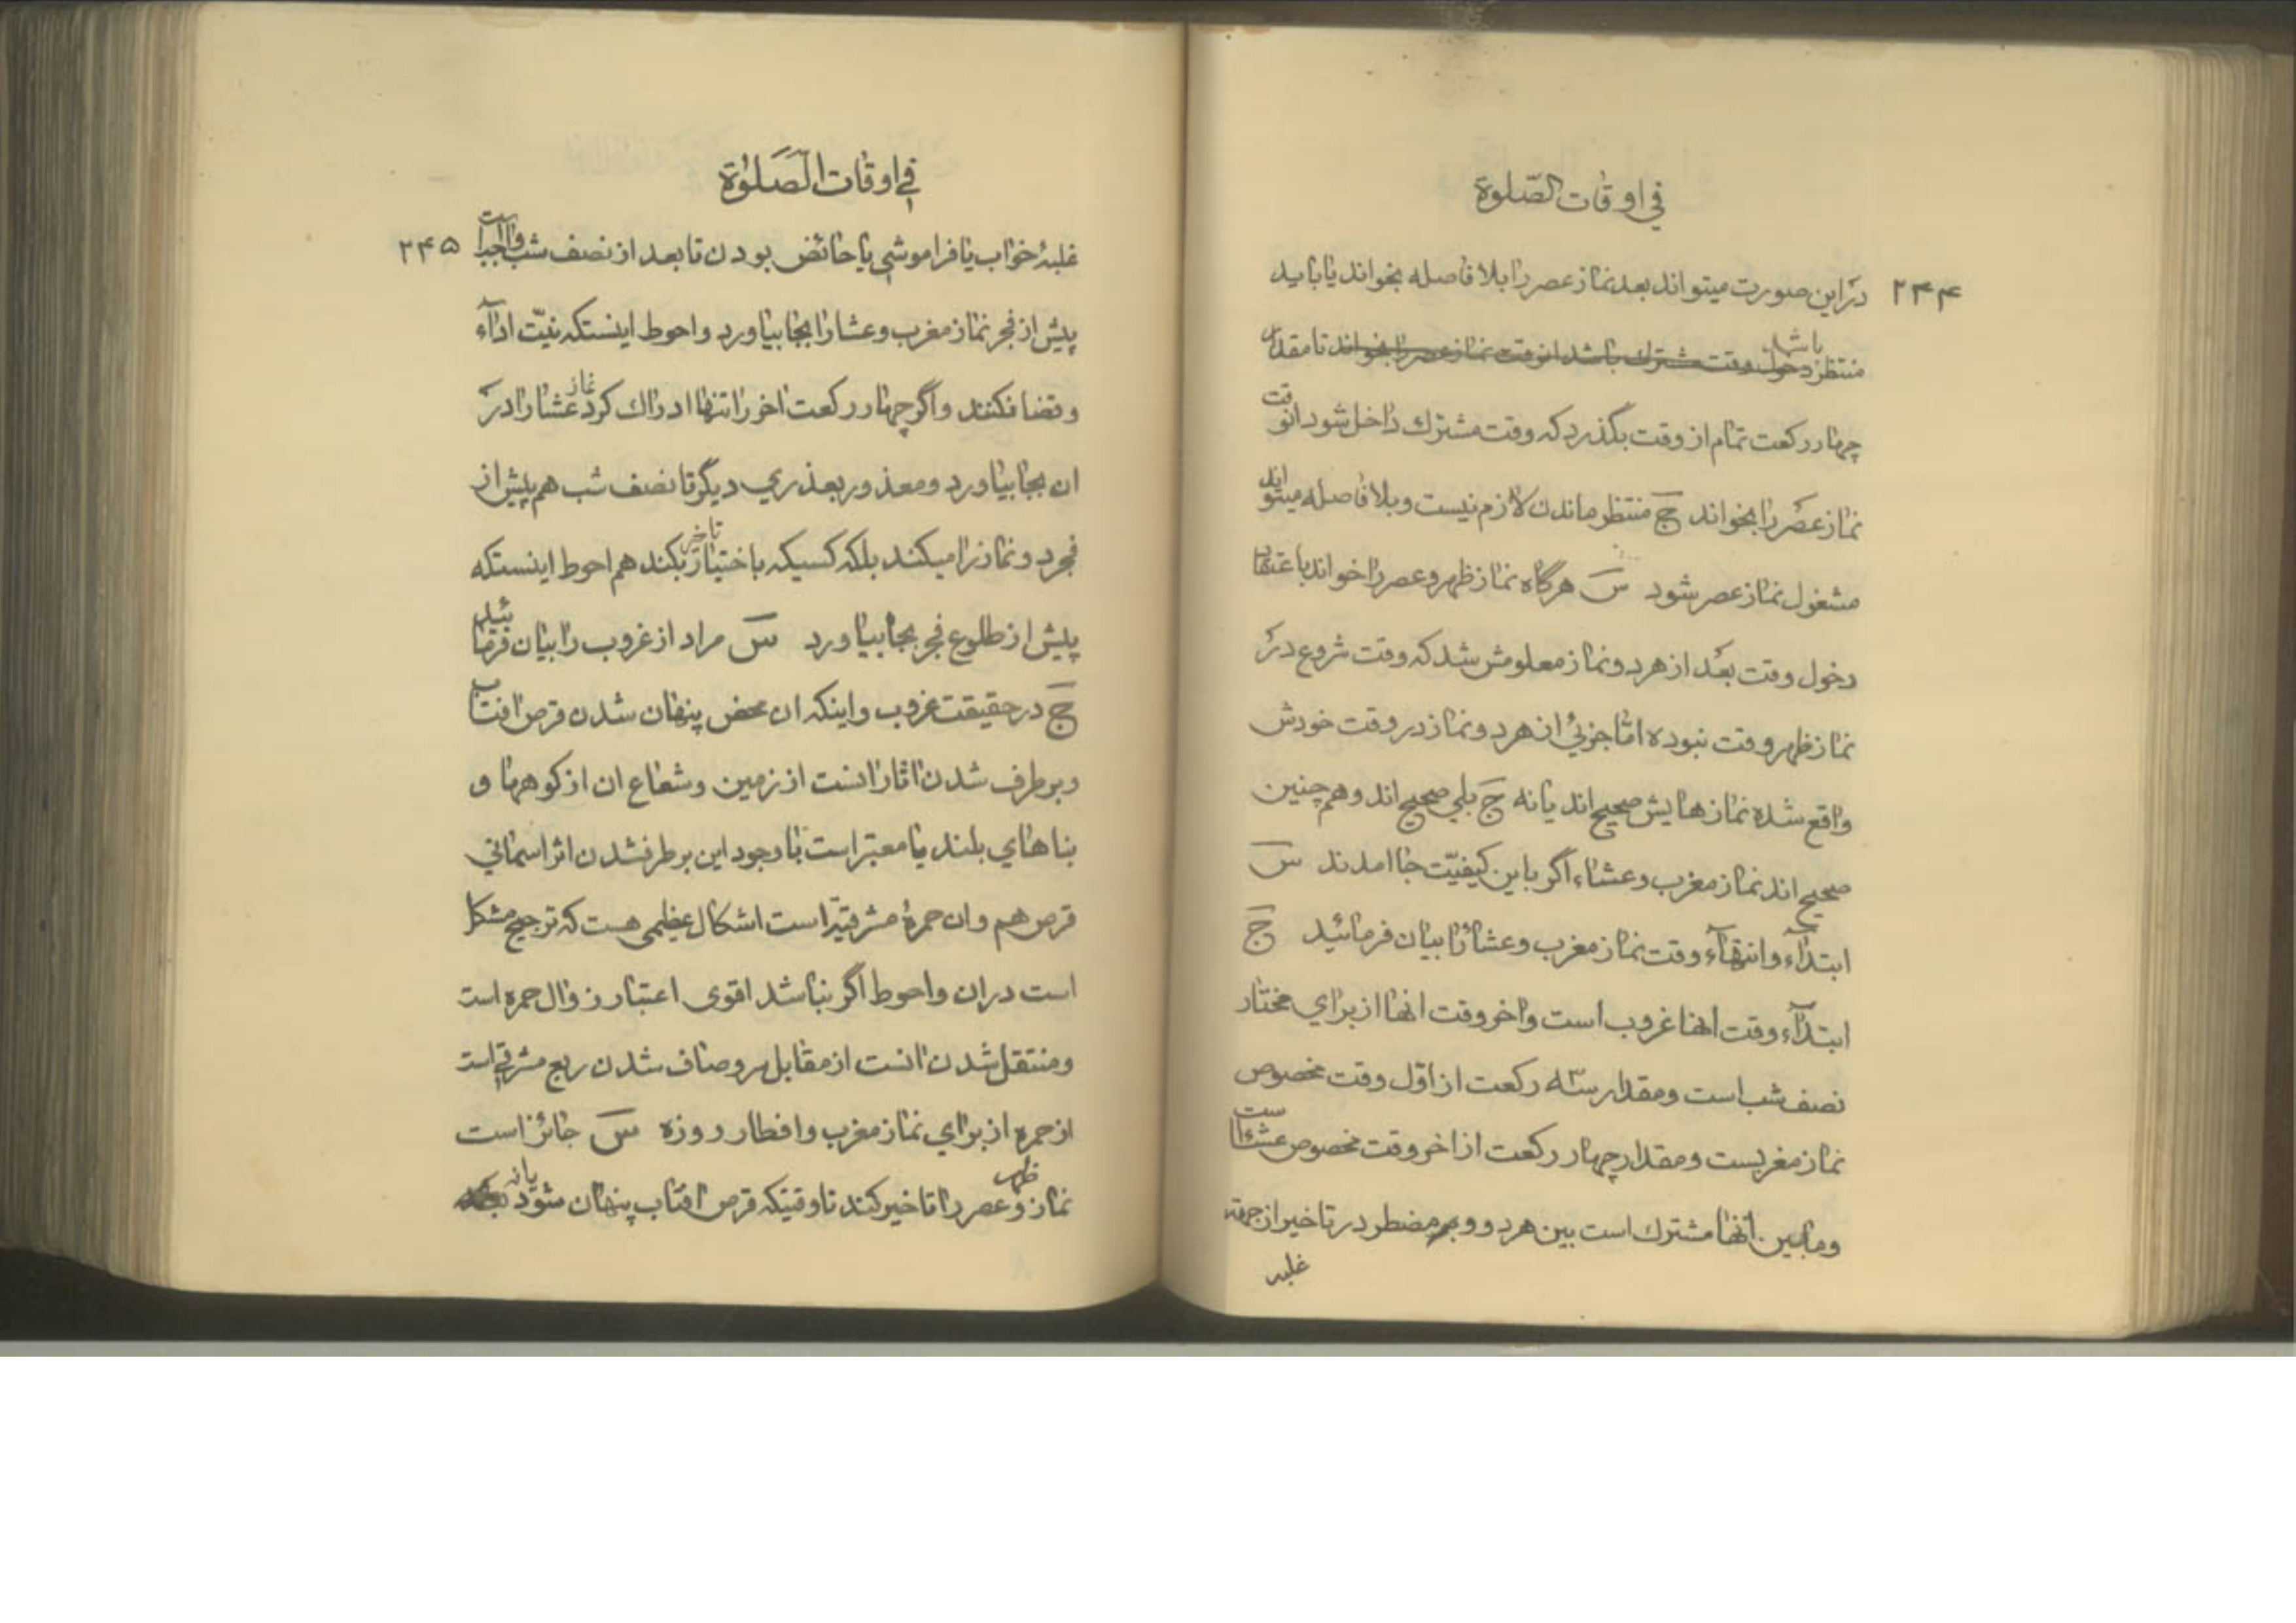 في اوقات الصّلوة
۲۴۴
در این صورت میتواند بعد نماز عصر را بلا فاصله بخواند یا باید
منتظر باشد دخول وقت مشترك باشد انوقت نماز عصر را بخواند تا مقدار
چهار ركعت تمام از وقت بگذرد كه وقت مشترك داخل شود انوقت
نماز عصر را بخواند ج منتظر ماندن لازم نیست و بلا فاصله میتواند
مشغول نماز عصر شود س هرگاه نماز ظهر و عصر را خواند باعتقاد
دخول وقت بعد از هر دو نماز معلومش شد كه وقت شروع در
نماز ظهر وقت نبوده امّا جزئي از هر دو نماز در وقت خودش
واقع شده نمازهایش صحیح اند یا نه ج بلي صحیح اند و هم چنین
صحیح اند نماز مغرب و عشاء اگر باین كیفیّت جا امدند س
ابتدآء و انتهآء وقت نماز مغرب و عشا را بیان فرمائید ج
ابتدآء وقت انها غروب است و اخر وقت انها از براي مختار
نصف شب است و مقدار سه ركعت از اوّل وقت مخصوص
نماز مغربست و مقدار چهار ركعت از اخر وقت مخصوص عشا است
و مابین انها مشترك است بین هر دو و مضطر در تاخیر از جهة
غلبه
في اوقات الصَّلوٰة
۲۴۵
غلبهٔ خواب یا فراموشي یا حائض بودن تا بعد از نصف شب واجب است
پیش از فجر نماز مغرب و عشا را بجا بیاورد و احوط اینستكه نیّت ادآء
و قضا نكنند و اگر چهار ركعت اخر را تنها ادراك كرد نماز عشا را در
ان بجا بیاورد و معذور بعذري دیگر تا نصف شب هم پیش از
فجر دو نماز را میكند بلكه كسیكه باختیار تاخیر بكند هم احوط اینستكه
پیش از طلوع فجر بجا بیاورد س مراد از غروب را بیان فرمائید
ج در حقیقت غروب و اینكه ان محض پنهان شدن قرص افتاب
و برطرف شدن اثار انست از زمین و شعاع ان از كوهها و
بناهاي بلند یا معتبر است با وجود این برطرفشدن اثر اسماني
قرص هم و ان حمرهٔ مشرقیّه است اشكال عظیمی هست كه ترجیح مشكل
است در ان و احوط اگر نباشد اقوی اعتبار زوال حمره است
و منتقل شدن انست از مقابل سر و صاف شدن ربع مشرقي است
از حمره از براي نماز مغرب و افطار روزه س جائز است
نماز ظهر و عصر را تاخیر كند تا وقتیكه قرص افتاب پنهان شود یا نه